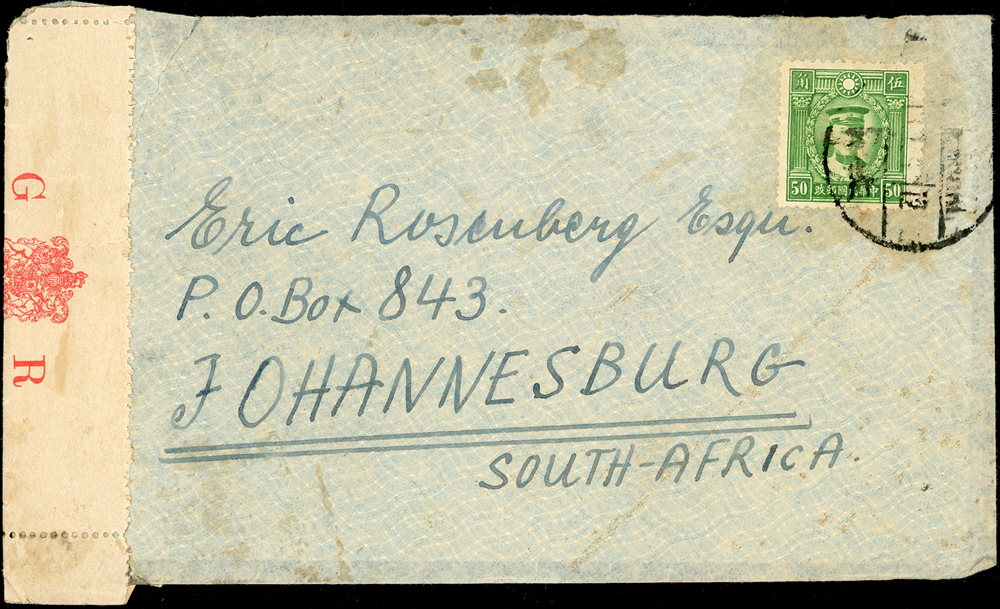 G R
伍 角
50 政郵國民華中 50
Eric Rosenberg Esqu.
P. O. Box 843.
JOHANNESBURG
SOUTH-AFRICA.